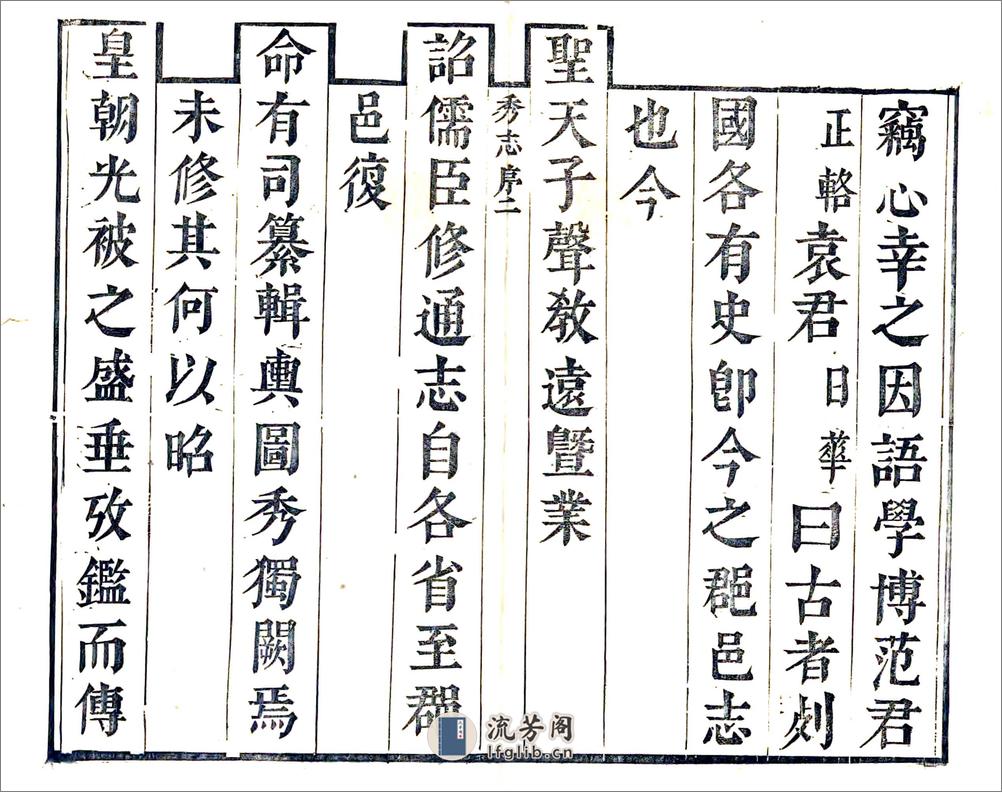 竊心幸之因語學博范君
正輅袁君日華曰古者列
國各有史卽今之郡邑志
也今
聖天子聲敎遠暨業
秀志序二
詔儒臣修通志自各省至郡
邑復
命有司纂輯輿圖秀獨闕焉
未修其何以昭
皇朝光被之盛垂攷鑑而傳
流芳阁
lfglib.cn